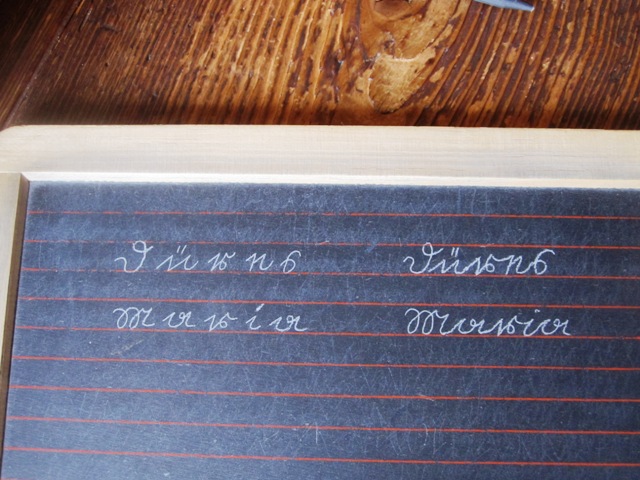 D ü r n s Dürns
M a r i a Maria